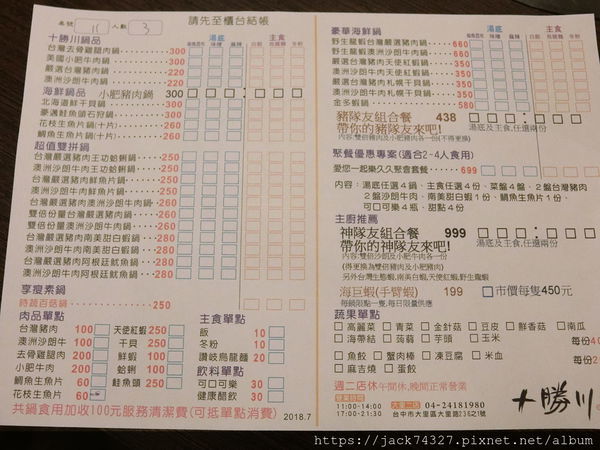 桌號 11 人數 3
請先至櫃台結帳
十勝川鍋品
台灣去骨雞腿肉鍋 300
美國小肥牛肉鍋 300
嚴選台灣豬肉鍋 220
澳洲沙朗牛肉鍋 220
海鮮鍋品 小肥豬肉鍋 300
北海道鮮干貝鍋 300
豪邁鮭魚頭石狩鍋 300
花枝生魚片鍋(十片) 260
鯛魚生魚片鍋(十片) 260
超值雙拼鍋
台灣嚴選豬肉王功蛤蜊鍋 250
澳洲沙朗牛肉王功蛤蜊鍋 250
台灣嚴選豬肉鮮魚片鍋 250
澳洲沙朗牛肉鮮魚片鍋 250
澳洲沙朗牛肉台灣豬肉鍋 250
雙倍份量台灣嚴選豬肉鍋 280
雙倍份量澳洲沙朗牛肉鍋 280
台灣嚴選豬肉南美甜白蝦鍋 280
澳洲沙朗牛肉南美甜白蝦鍋 280
台灣嚴選豬肉阿根廷魷魚鍋 280
澳洲沙朗牛肉阿根廷魷魚鍋 280
享瘦素鍋
時蔬百菇鍋 250
肉品單點
台灣豬肉 100 天使紅蝦 250
澳洲沙朗牛 100 干貝 250
去骨雞腿肉 200 鮮蝦 100
小肥牛肉 200 蛤蜊 100
鯛魚生魚片 60 鮭魚頭 250
花枝生魚片 60
主食單點
飯 10
冬粉 10
讚岐烏龍麵 20
飲料單點
可口可樂 30
健康醋飲 30
共鍋食用加收100元服務清潔費(可抵單點消費) 2018.7
豪華海鮮鍋
湯底 主食
野生龍蝦台灣嚴選豬肉鍋 660
野生龍蝦澳洲沙朗牛肉鍋 660
嚴選台灣豬肉天使紅蝦鍋 350
澳洲沙朗牛肉天使紅蝦鍋 350
嚴選台灣豬肉札幌干貝鍋 350
澳洲沙朗牛肉札幌干貝鍋 350
金多蝦鍋 580
豬隊友組合餐 438
帶你的豬隊友來吧!
湯底及主食,任選兩份
內容:雙倍豬肉及小肥牛肉各一份(不得更換)
聚餐優惠專案(適合2-4人食用)
愛您一起樂久久聚會套餐 699
內容:湯底任選4鍋、主食任選4份、菜盤4盤、2盤台灣豬肉
2盤沙朗牛肉、南美甜白蝦1份、鯛魚生魚片1份、
可口可樂4瓶、甜點4份
主廚推薦
神隊友組合餐 999
帶你的神隊友來吧!
湯底及主食,任選兩份
內容:雙份沙朗牛及小肥牛肉各一份
(得更換為雙倍豬肉及小肥豬肉)
另外台灣生態蝦,南美白蝦,天使紅蝦,野生龍蝦
海巨蝦(手臂蝦) 199 市價每隻450元
每鍋限點一隻,每日限量供應
蔬果單點
高麗菜 青菜 金針菇 豆皮 鮮香菇 南瓜
海帶結 蒟蒻 芋頭 玉米 每份40
魚餃 蟹肉棒 凍豆腐 米血
麻吉燒 蛋餃 每份
週二店休 午間休,晚間正常營業
營業時間
11:00-14:00
17:00-21:30
大里二店 04-24181980
台中市大里區大里路236之1號
十勝川
https://jack74327.pixnet.net/album